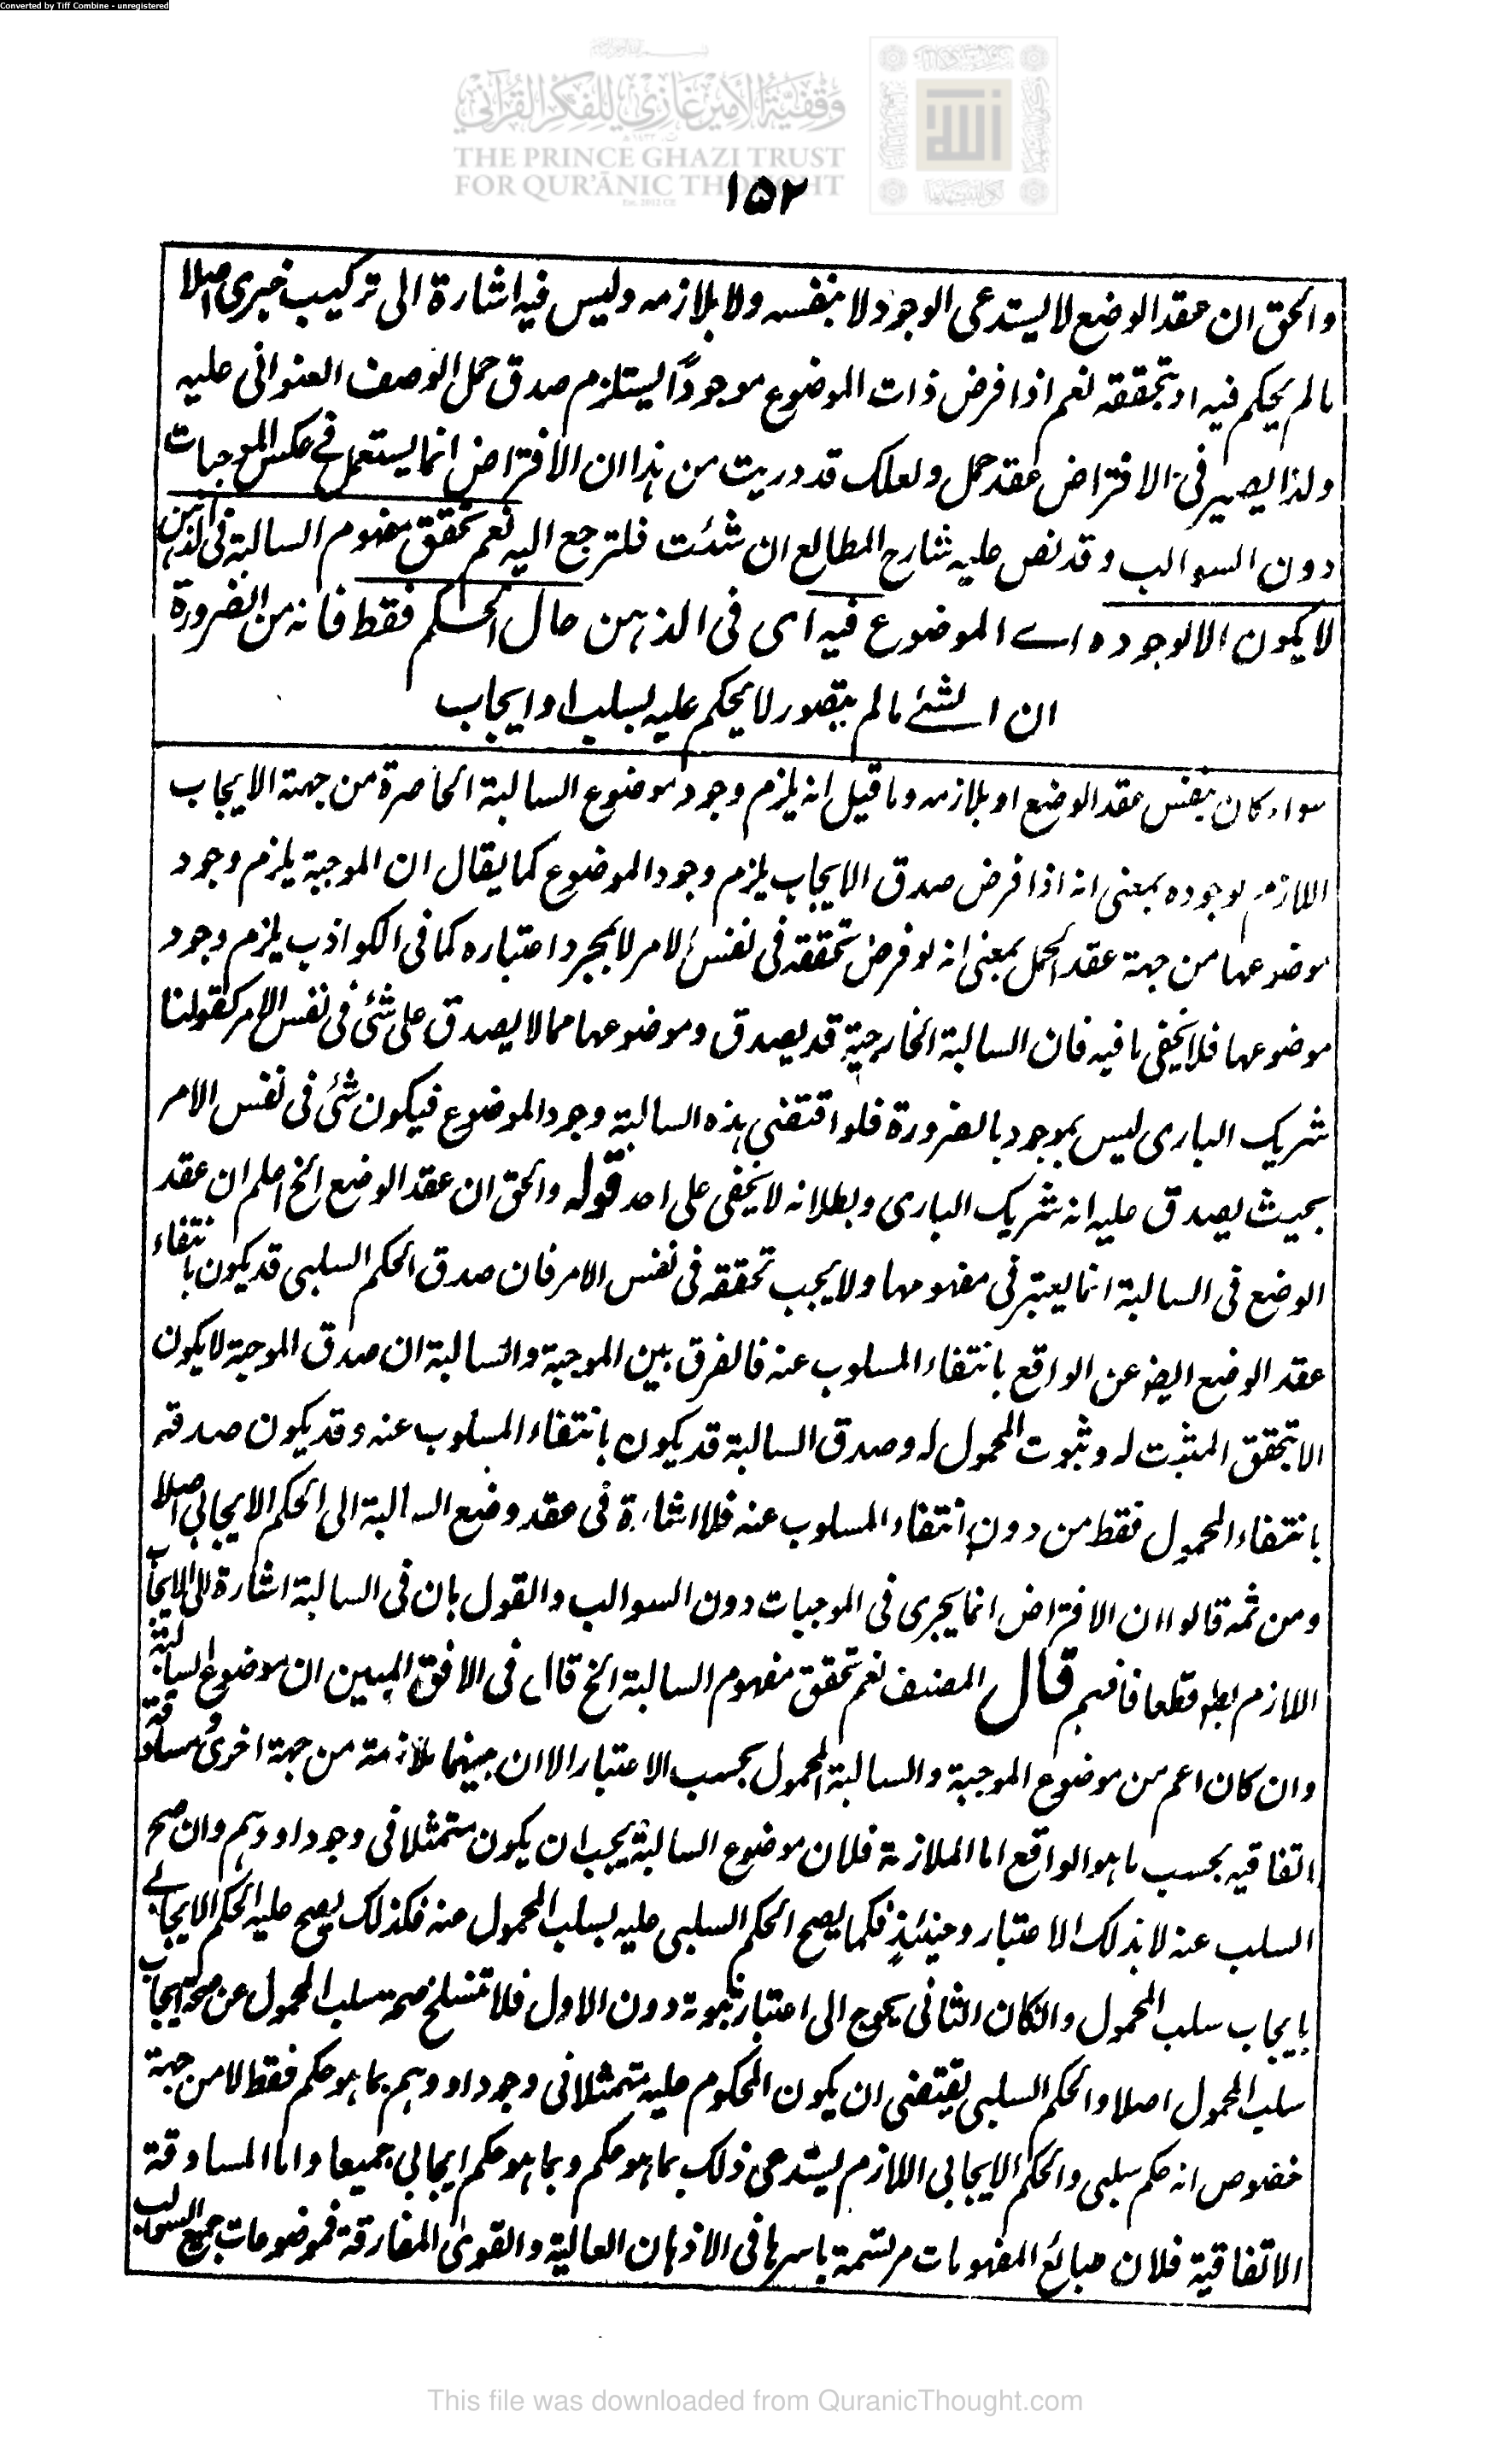 Converted by Tiff Combine - unregistered
وقفية الأمير غازي للفكر القرآني
THE PRINCE GHAZI TRUST
FOR QUR'ĀNIC THOUGHT
۱۵۲
والحق ان عقد الوضع لا يستدعى الوجود لا بنفسه ولا بلازمه وليس فيه اشارة الى تركيب خبرى اصلا
ما لم يحكم فيه او بتحققه نعم اذا فرض ذات الموضوع موجودًا ليستلزم صدق حمل الوصف العنوانى عليه
ولذا يصير فى الافتراض عقد حمل ولعلك قد دريت من هذا ان الافتراض انما يستعمل فے عكس الموجبات
دون السوالب وقد نص عليه شارح المطالع ان شئت فلترجع اليه نعم تحقق مفهوم السالبة فى الذهن
لا يكون الا لوجوده اے الموضوع فيه اى فى الذهن حال الحكم فقط فانه من الضرورة
ان الشئے ما لم يتصور لا يحكم عليه بسلب او ايجاب
سواء كان بنفس عقد الوضع او بلازمه وما قيل انه يلزم وجود موضوع السالبة الحاضرة من جهة الايجاب
اللازم لوجوده بمعنى انه اذا فرض صدق الايجاب يلزم وجود الموضوع كما يقال ان الموجبة يلزم وجود
موضوعها من جهة عقد الحمل بمعنى انه لو فرض تحققه فى نفس الامر لا بمجرد اعتباره كما فى الكواذب يلزم وجود
موضوعها فلا يخفى ما فيه فان السالبة الخارجية قد يصدق وموضوعها مما لا يصدق على شئ فى نفس الامر كقولنا
شريك البارى ليس بموجود بالضرورة فلو اقتضى هذه السالبة وجود الموضوع فيكون شئ فى نفس الامر
بحيث يصدق عليه انه شريك البارى وبطلانه لا يخفى على احد قوله والحق ان عقد الوضع الخ اعلم ان عقد
الوضع فى السالبة انما يعتبر فى مفهومها ولا يجب تحققه فى نفس الامر فان صدق الحكم السلبى قد يكون بانتفاء
عقد الوضع ايضا عن الواقع بانتفاء المسلوب عنه فالفرق بين الموجبة والسالبة ان صدق الموجبة لا يكون
الا بتحقق المثبت له وثبوت المحمول له وصدق السالبة قد يكون بانتفاء المسلوب عنه وقد يكون صدقه
بانتفاء المحمول فقط من دون انتفاء المسلوب عنه فلا اشارة فى عقد وضع السالبة الى الحكم الايجابى اصلا
ومن ثمه قالوا ان الافتراض انما يجرى فى الموجبات دون السوالب والقول بان فى السالبة اشارة الى الايجاب
اللازم بط قطعا فافهم قال المصنف نعم تحقق مفهوم السالبة الخ قال فى الافق المبين ان موضوع السالبة
وان كان اعم من موضوع الموجبة والسالبة المحمول بحسب الاعتبار الا ان بينهما ملازمة من جهة اخرى ومساوقة
اتفاقيه بحسب ما هو الواقع اما الملازمة فلان موضوع السالبة يجب ان يكون متمثلا فى وجود او وهم وان صح
السلب عنه لا بذلك الاعتبار وحينئذٍ فكما يصح الحكم السلبى عليه بسلب المحمول عنه فكذلك يصح عليه الحكم الايجابے
بايجاب سلب المحمول وان كان الثانى يحوج الى اعتبار ثبوته دون الاول فلا تنسلخ صحة سلب المحمول عن صحة ايجاب
سلب المحمول اصلا والحكم السلبى يقتضى ان يكون المحكوم عليه متمثلا فى وجود او وهم بما هو حكم فقط لا من جهة
خصوص انه حكم سلبى والحكم الايجابى اللازم يستدعى ذلك بما هو حكم وبما هو حكم ايجابى جميعا واما المساوقة
الاتفاقية فلان طبائع المفهومات مرتسمة باسرها فى الاذهان العالية والقوى المفارقة فموضوعات جميع السوالب
This file was downloaded from QuranicThought.com